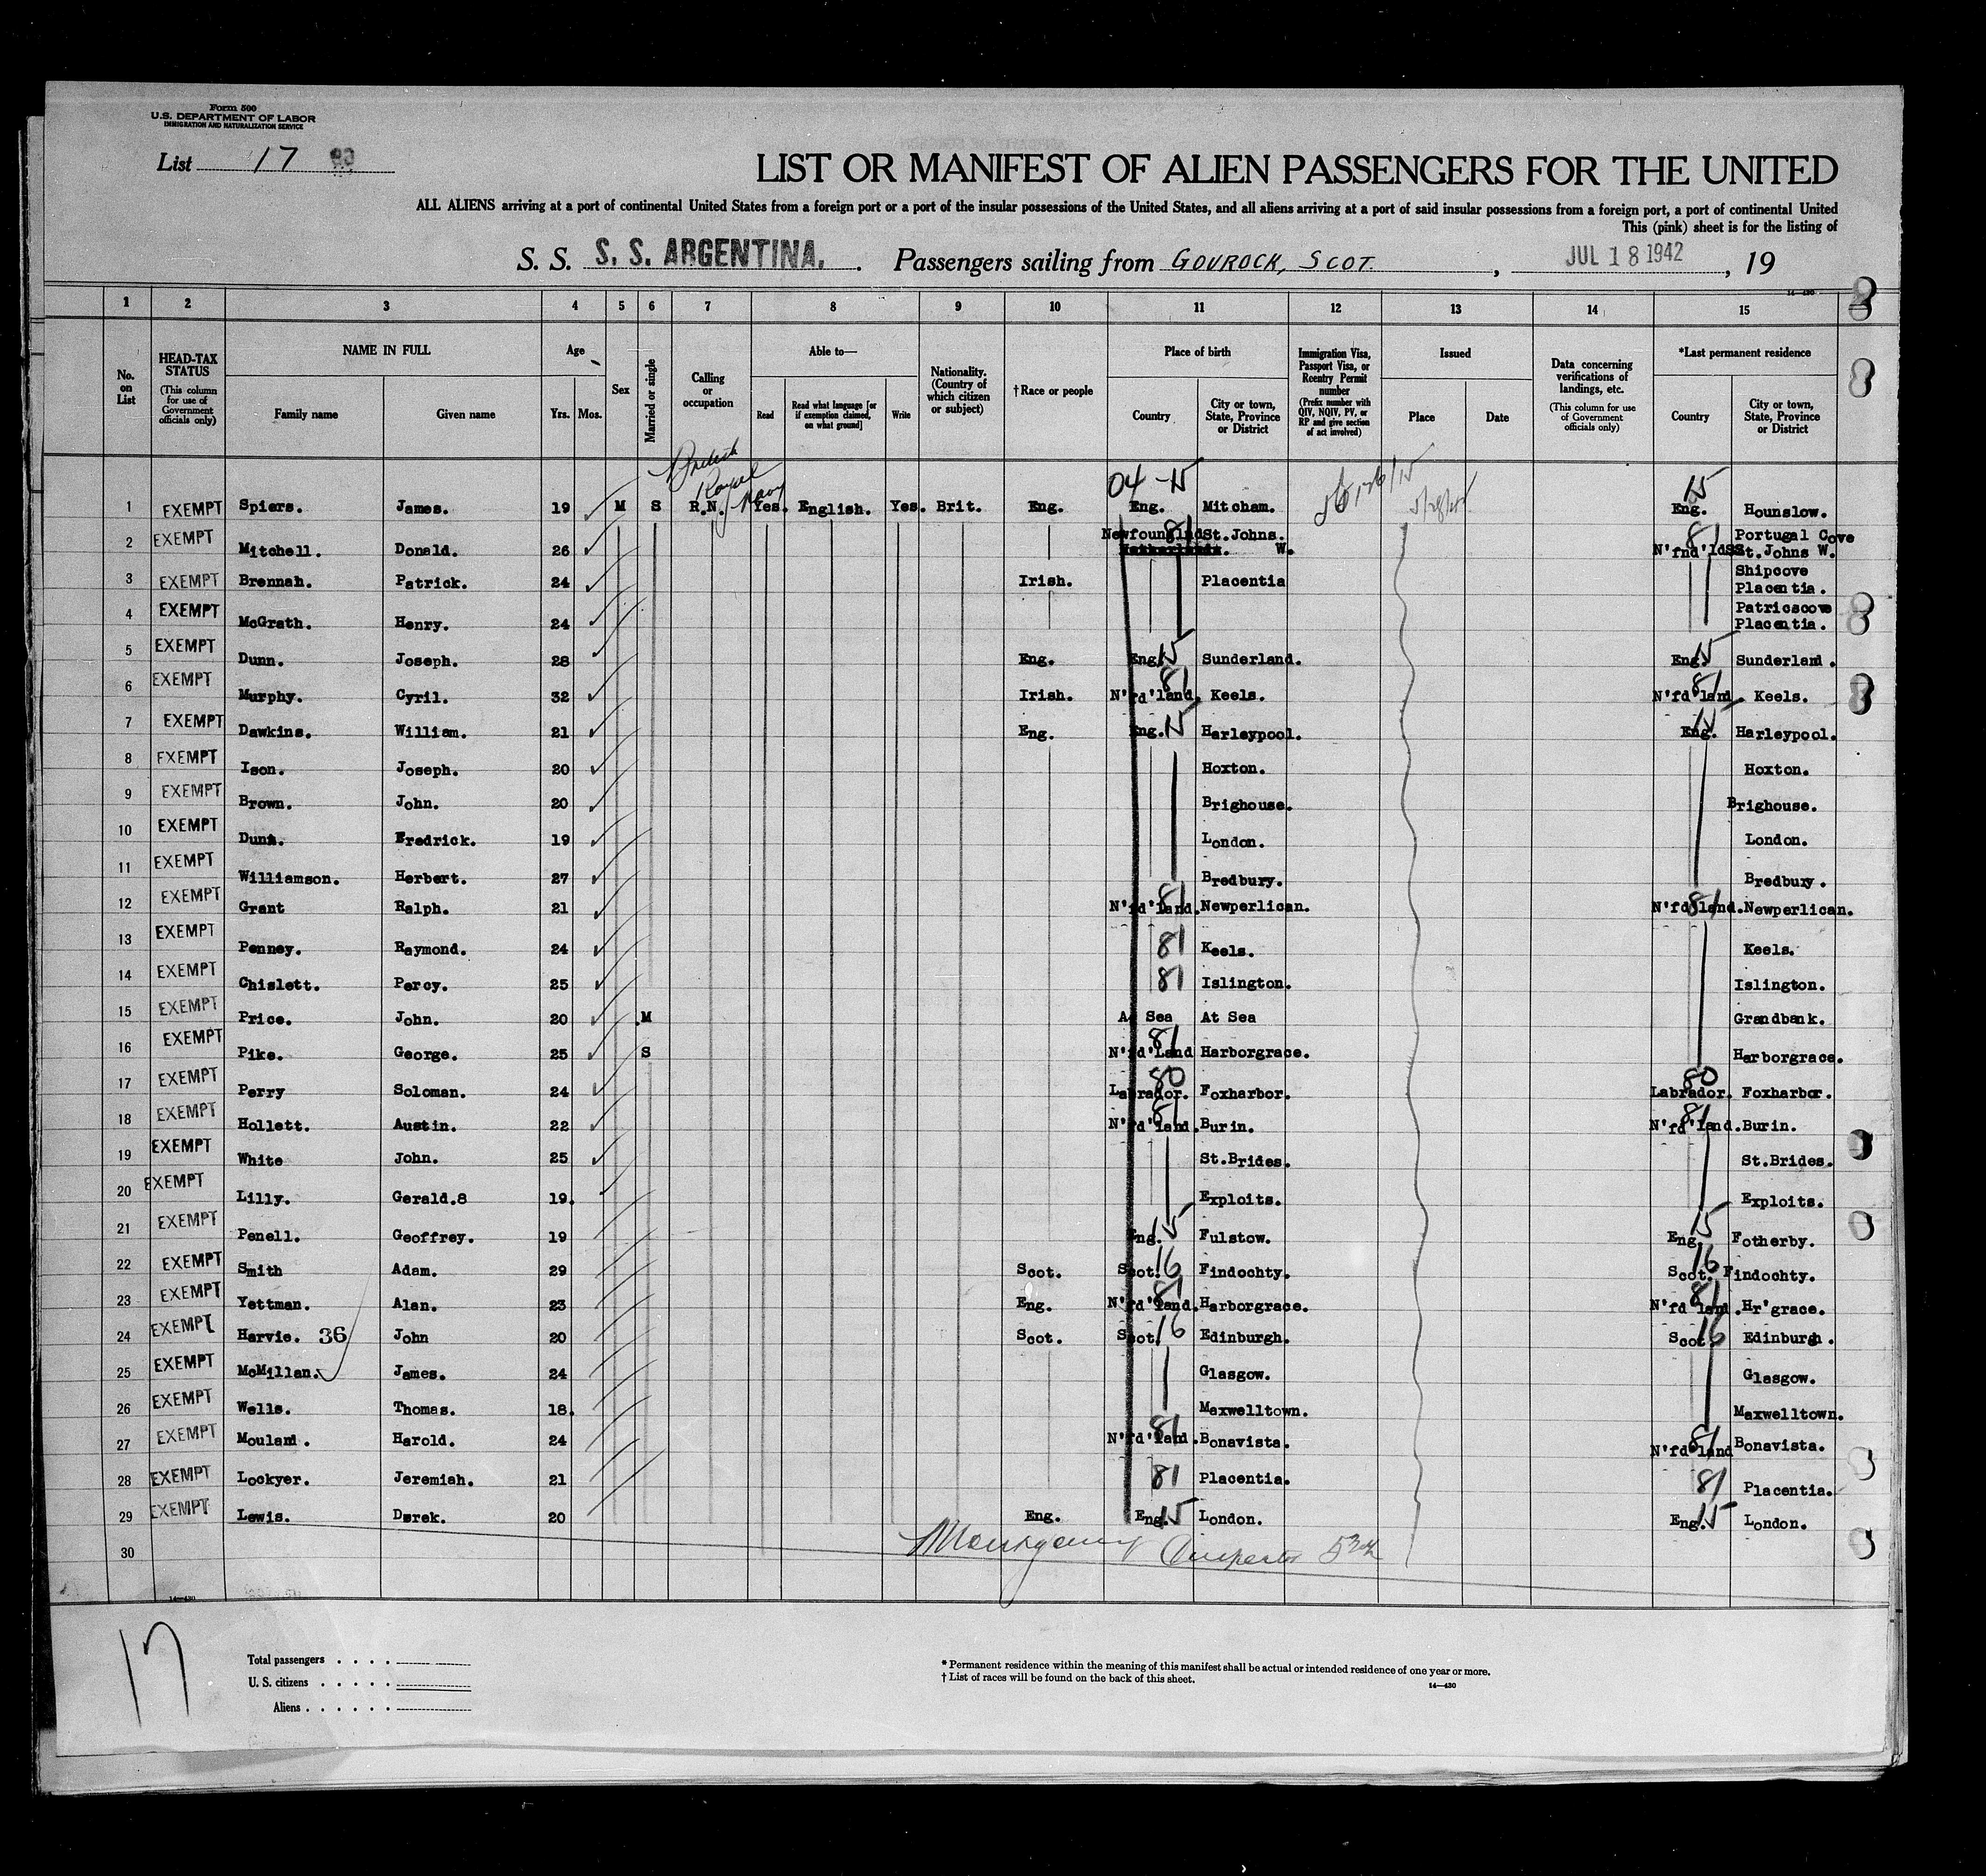 Form 500
U.S. DEPARTMENT OF LABOR
IMMIGRATION AND NATURALIZATION SERVICE
List 17
LIST OR MANIFEST OF ALIEN PASSENGERS FOR THE UNITED
ALL ALIENS arriving at a port of continental United States from a foreign port or a port of the insular possessions of the United States, and all aliens arriving at a port of said insular possessions from a foreign port, a port of continental United
This (pink) sheet is for the listing of
S. S. S. S. ARGENTINA. Passengers sailing from GOUROCK, SCOT. , JUL 18 1942 , 19
14—430
1 2 3 4 5 6 7 8 9 10 11 12 13 14 15
No. on List
HEAD-TAX STATUS (This column for use of Government officials only)
NAME IN FULL Family name Given name
Age Yrs. Mos.
Sex
Married or single
Calling or occupation
Able to— Read Read what language [or if exemption claimed, on what ground] Write
Nationality. (Country of which citizen or subject)
†Race or people
Place of birth Country City or town, State, Province or District
Immigration Visa, Passport Visa, or Reentry Permit number (Prefix number with QIV, NQIV, PV, or RP and give section of act involved)
Issued Place Date
Data concerning verifications of landings, etc. (This column for use of Government officials only)
*Last permanent residence Country City or town, State, Province or District
British Royal Navy
04-15 15
1 EXEMPT Spiers. James. 19 M S R.N. Yes. English. Yes. Brit. Eng. Eng. Mitcham. Eng. Hounslow.
2 EXEMPT Mitchell. Donald. 26 Newfoundland 81 St. Johns. W. N'fnd'ld 81 Portugal Cove St. Johns W.
3 EXEMPT Brennah. Patrick. 24 Irish. Placentia Shipcove Placentia.
4 EXEMPT McGrath. Henry. 24 Patricscove Placentia.
5 EXEMPT Dunn. Joseph. 28 Eng. Eng. 15 Sunderland. Eng. 15 Sunderland.
6 EXEMPT Murphy. Cyril. 32 Irish. N'fd'land. 81 Keels. N'fd'land 81 Keels.
7 EXEMPT Dawkins. William. 21 Eng. Eng. 15 Harleypool. Eng. 15 Harleypool.
8 EXEMPT Ison. Joseph. 20 Hoxton. Hoxton.
9 EXEMPT Brown. John. 20 Brighouse. Brighouse.
10 EXEMPT Dunn. Fredrick. 19 London. London.
11 EXEMPT Williamson. Herbert. 27 Bredbury. Bredbury.
12 EXEMPT Grant Ralph. 21 N'fd'land. 81 Newperlican. N'fd'land. 81 Newperlican.
13 EXEMPT Penney. Raymond. 24 81 Keels. Keels.
14 EXEMPT Chislett. Percy. 25 81 Islington. Islington.
15 EXEMPT Price. John. 20 .M At Sea At Sea Grandbank.
16 EXEMPT Pike. George. 25 S N'fd'Land 81 Harborgrace. Harborgrace.
17 EXEMPT Perry Soloman. 24 Labrador. 80 Foxharbor. Labrador. 80 Foxharbor.
18 EXEMPT Hollett. Austin. 22 N'fd'land. 81 Burin. N'fd'land. 81 Burin.
19 EXEMPT White John. 25 St.Brides. St.Brides.
20 EXEMPT Lilly. Gerald.8 19. Exploits. Exploits.
21 EXEMPT Penell. Geoffrey. 19 Eng. 15 Fulstow. Eng. 15 Fotherby.
22 EXEMPT Smith Adam. 29 Scot. Scot. 16 Findochty. Scot. 16 Findochty.
23 EXEMPT Yettman. Alan. 23 Eng. N'fd'land. 81 Harborgrace. N'fd'land. 81 Hr'grace.
24 EXEMPT Harvie. 36 John 20 Scot. Scot. 16 Edinburgh. Scot. 16 Edinburgh.
25 EXEMPT McMillan. James. 24 Glasgow. Glasgow.
26 EXEMPT Wells. Thomas. 18. Maxwelltown. Maxwelltown.
27 EXEMPT Mouland. Harold. 24 N'fd'land. 81 Bonavista. N'fd'land 81 Bonavista.
28 EXEMPT Lockyer. Jeremiah. 21 81 Placentia. 81 Placentia.
29 EXEMPT Lewis. Derek. 20 Eng. Eng. 15 London. Eng. 15 London.
30
14—430
17
Total passengers
U. S. citizens
Aliens
* Permanent residence within the meaning of this manifest shall be actual or intended residence of one year or more.
† List of races will be found on the back of this sheet.
14—430